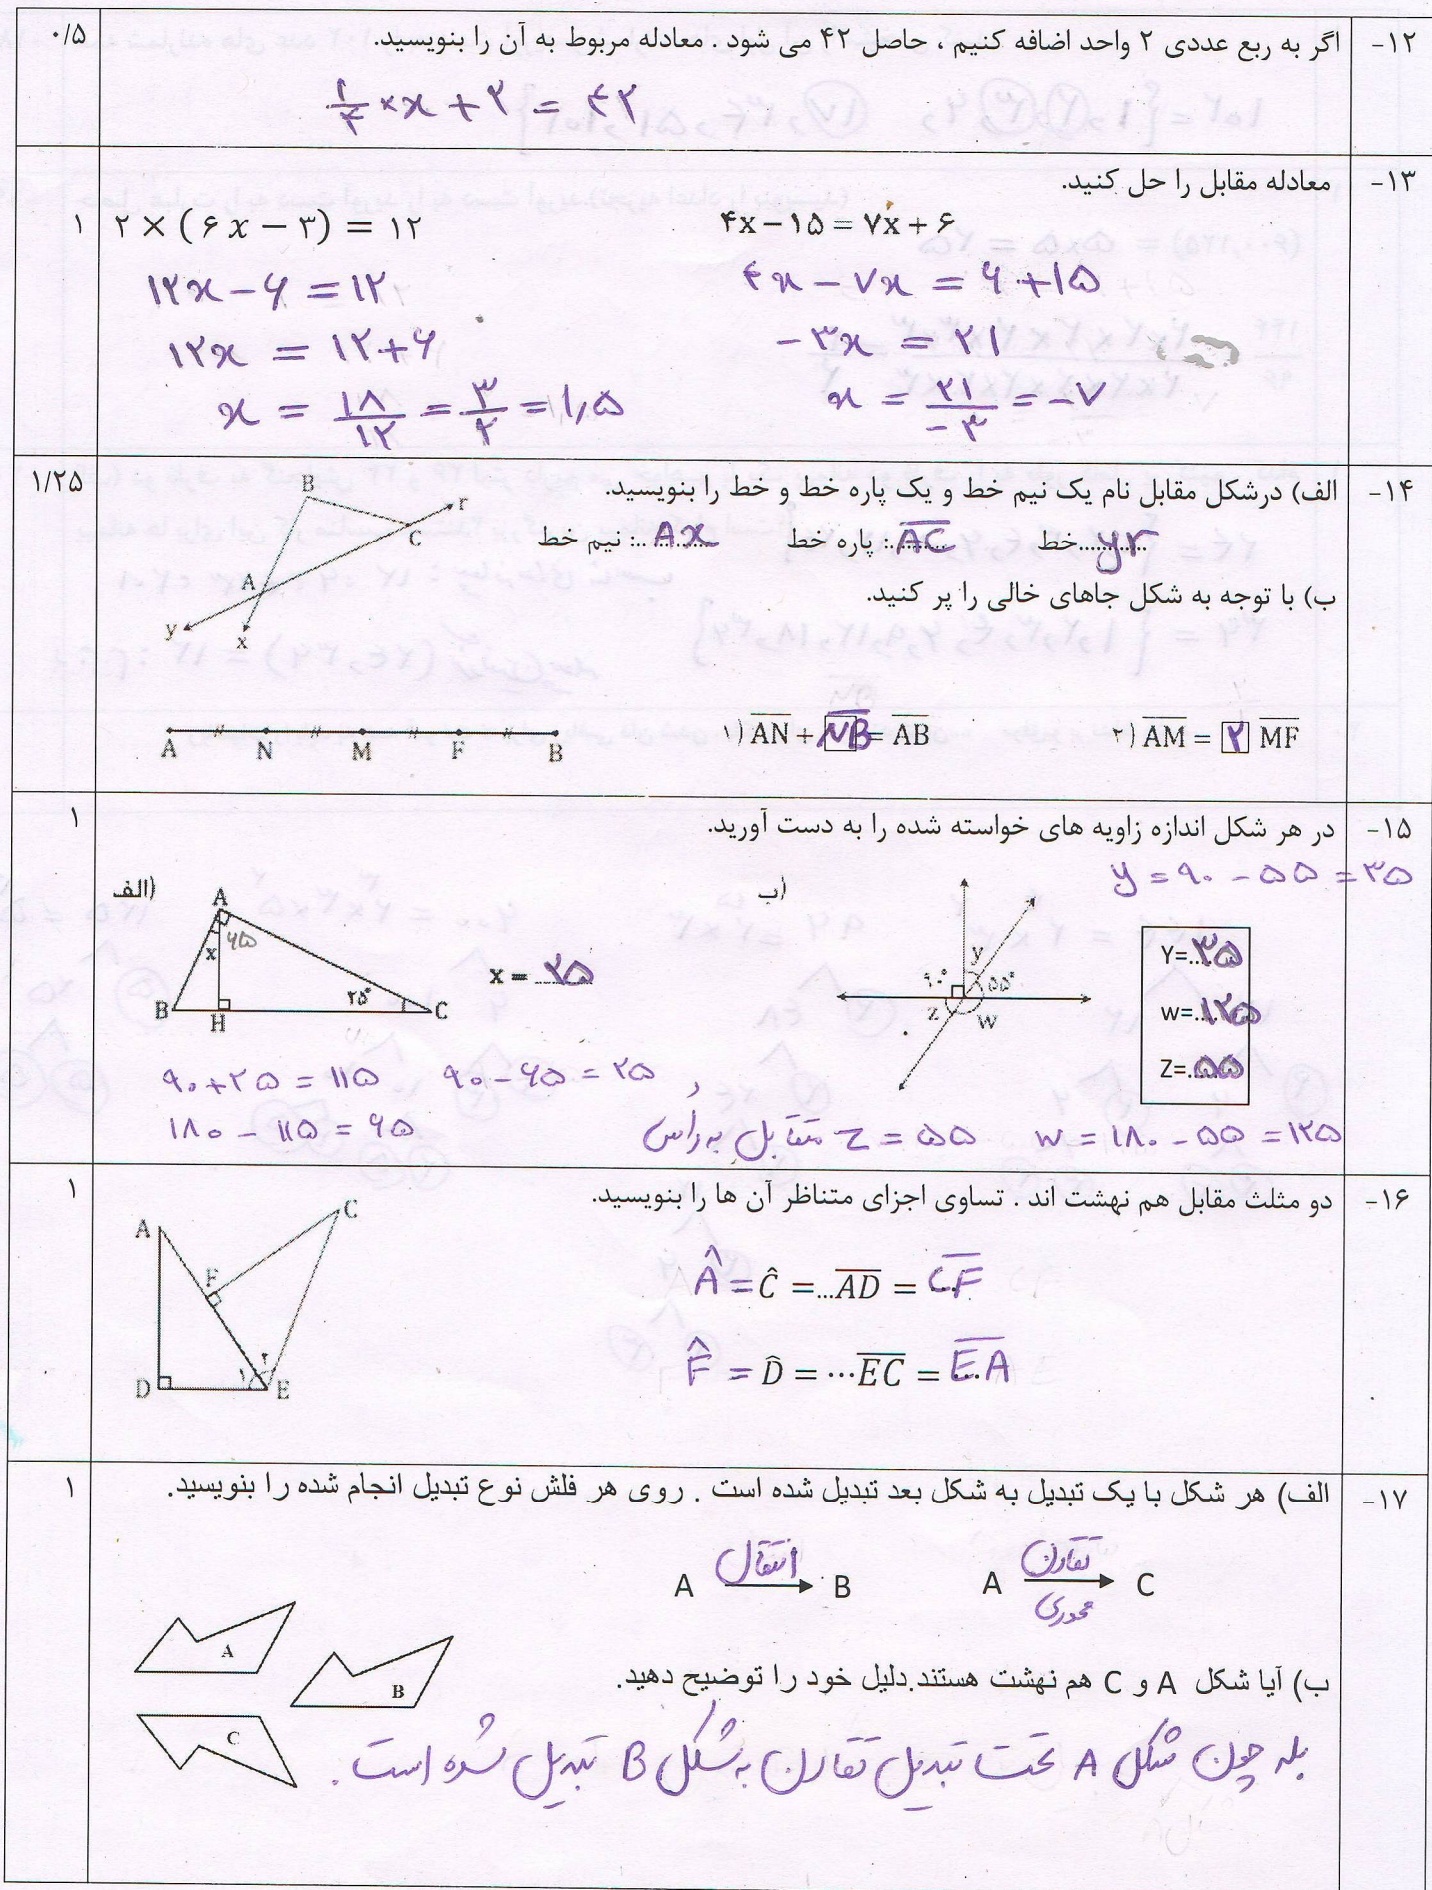 ۱۲- اگر به ربع عددی ۲ واحد اضافه کنیم ، حاصل ۴۲ می شود . معادله مربوط به آن را بنویسید. ۰/۵
۱/۴ × x + ۲ = ۴۲
۱۳- معادله مقابل را حل کنید.
۱
۲ × (۶x − ۳) = ۱۲
۱۲x − ۶ = ۱۲
۱۲x = ۱۲+۶
x = ۱۸/۱۲ = ۳/۲ = ۱٫۵
۴x − ۱۵ = ۷x + ۶
۴x − ۷x = ۶ + ۱۵
−۳x = ۲۱
x = ۲۱/−۳ = −۷
۱۴- الف) درشکل مقابل نام یک نیم خط و یک پاره خط و خط را بنویسید. ۱/۲۵
خط yr پاره خط : AC نیم خط : Ax
B
r
C
A
y
x
ب) با توجه به شکل جاهای خالی را پر کنید.
۱) AN + NB = AB
۲) AM = ۲ MF
A N M F B
۱۵- در هر شکل اندازه زاویه های خواسته شده را به دست آورید. ۱
y = ۹۰ − ۵۵ = ۳۵
الف)
A
x ۶۵
۲۵°
B H C
x = ۲۵
ب)
y
۹۰° ۵۵°
z w
Y=۳۵
w=۱۲۵
Z=۵۵
۹۰+۲۵ = ۱۱۵ ۹۰ − ۶۵ = ۲۵
۱۸۰ − ۱۱۵ = ۶۵
متقابل به رأس z = ۵۵ w = ۱۸۰ − ۵۵ = ۱۲۵
۱۶- دو مثلث مقابل هم نهشت اند . تساوی اجزای متناظر آن ها را بنویسید. ۱
C
A
F
۲
۱
D E
Â = Ĉ =...AD = CF
F̂ = D̂ = ...EC = EA
۱۷- الف) هر شکل با یک تبدیل به شکل بعد تبدیل شده است . روی هر فلش نوع تبدیل انجام شده را بنویسید. ۱
A انتقال B
A تقارن محوری C
A
B
C
ب) آیا شکل A و C هم نهشت هستند.دلیل خود را توضیح دهید.
بله چون شکل A تحت تبدیل تقارن به شکل B تبدیل شده است .